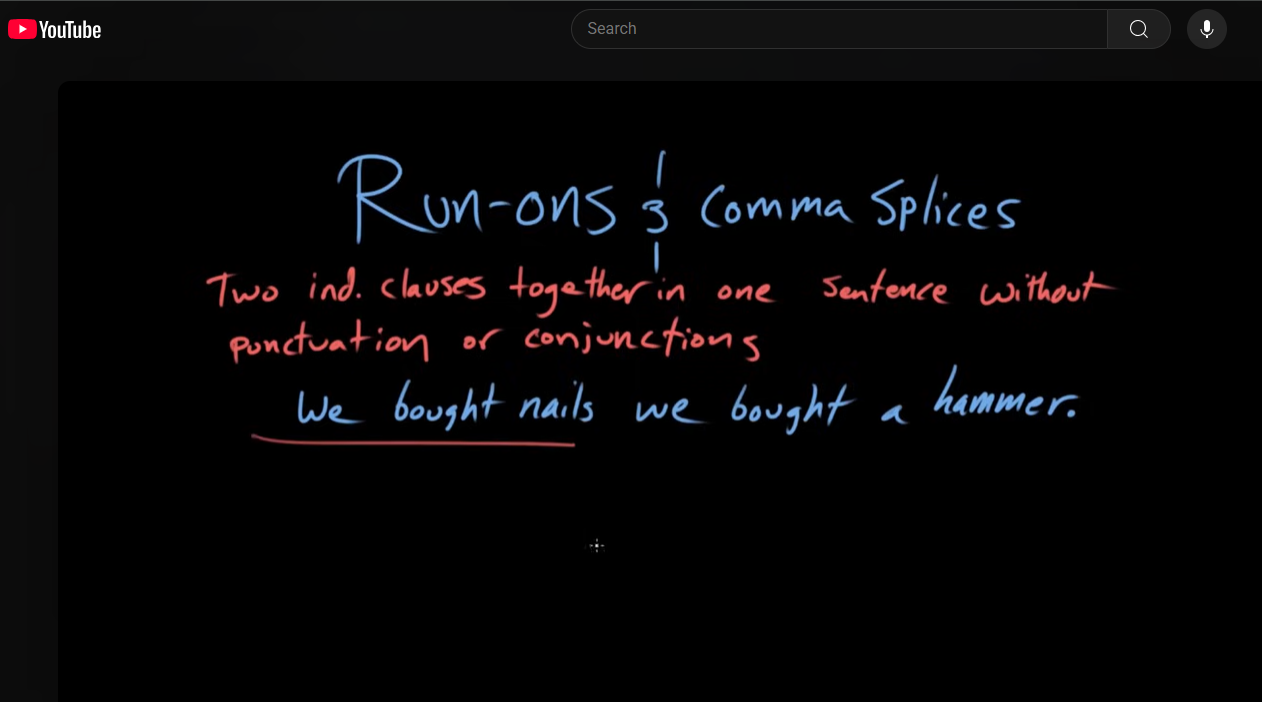 YouTube
Search
Run-ons & Comma Splices
Two ind. clauses together in one sentence without
punctuation or conjunctions
We bought nails we bought a hammer.